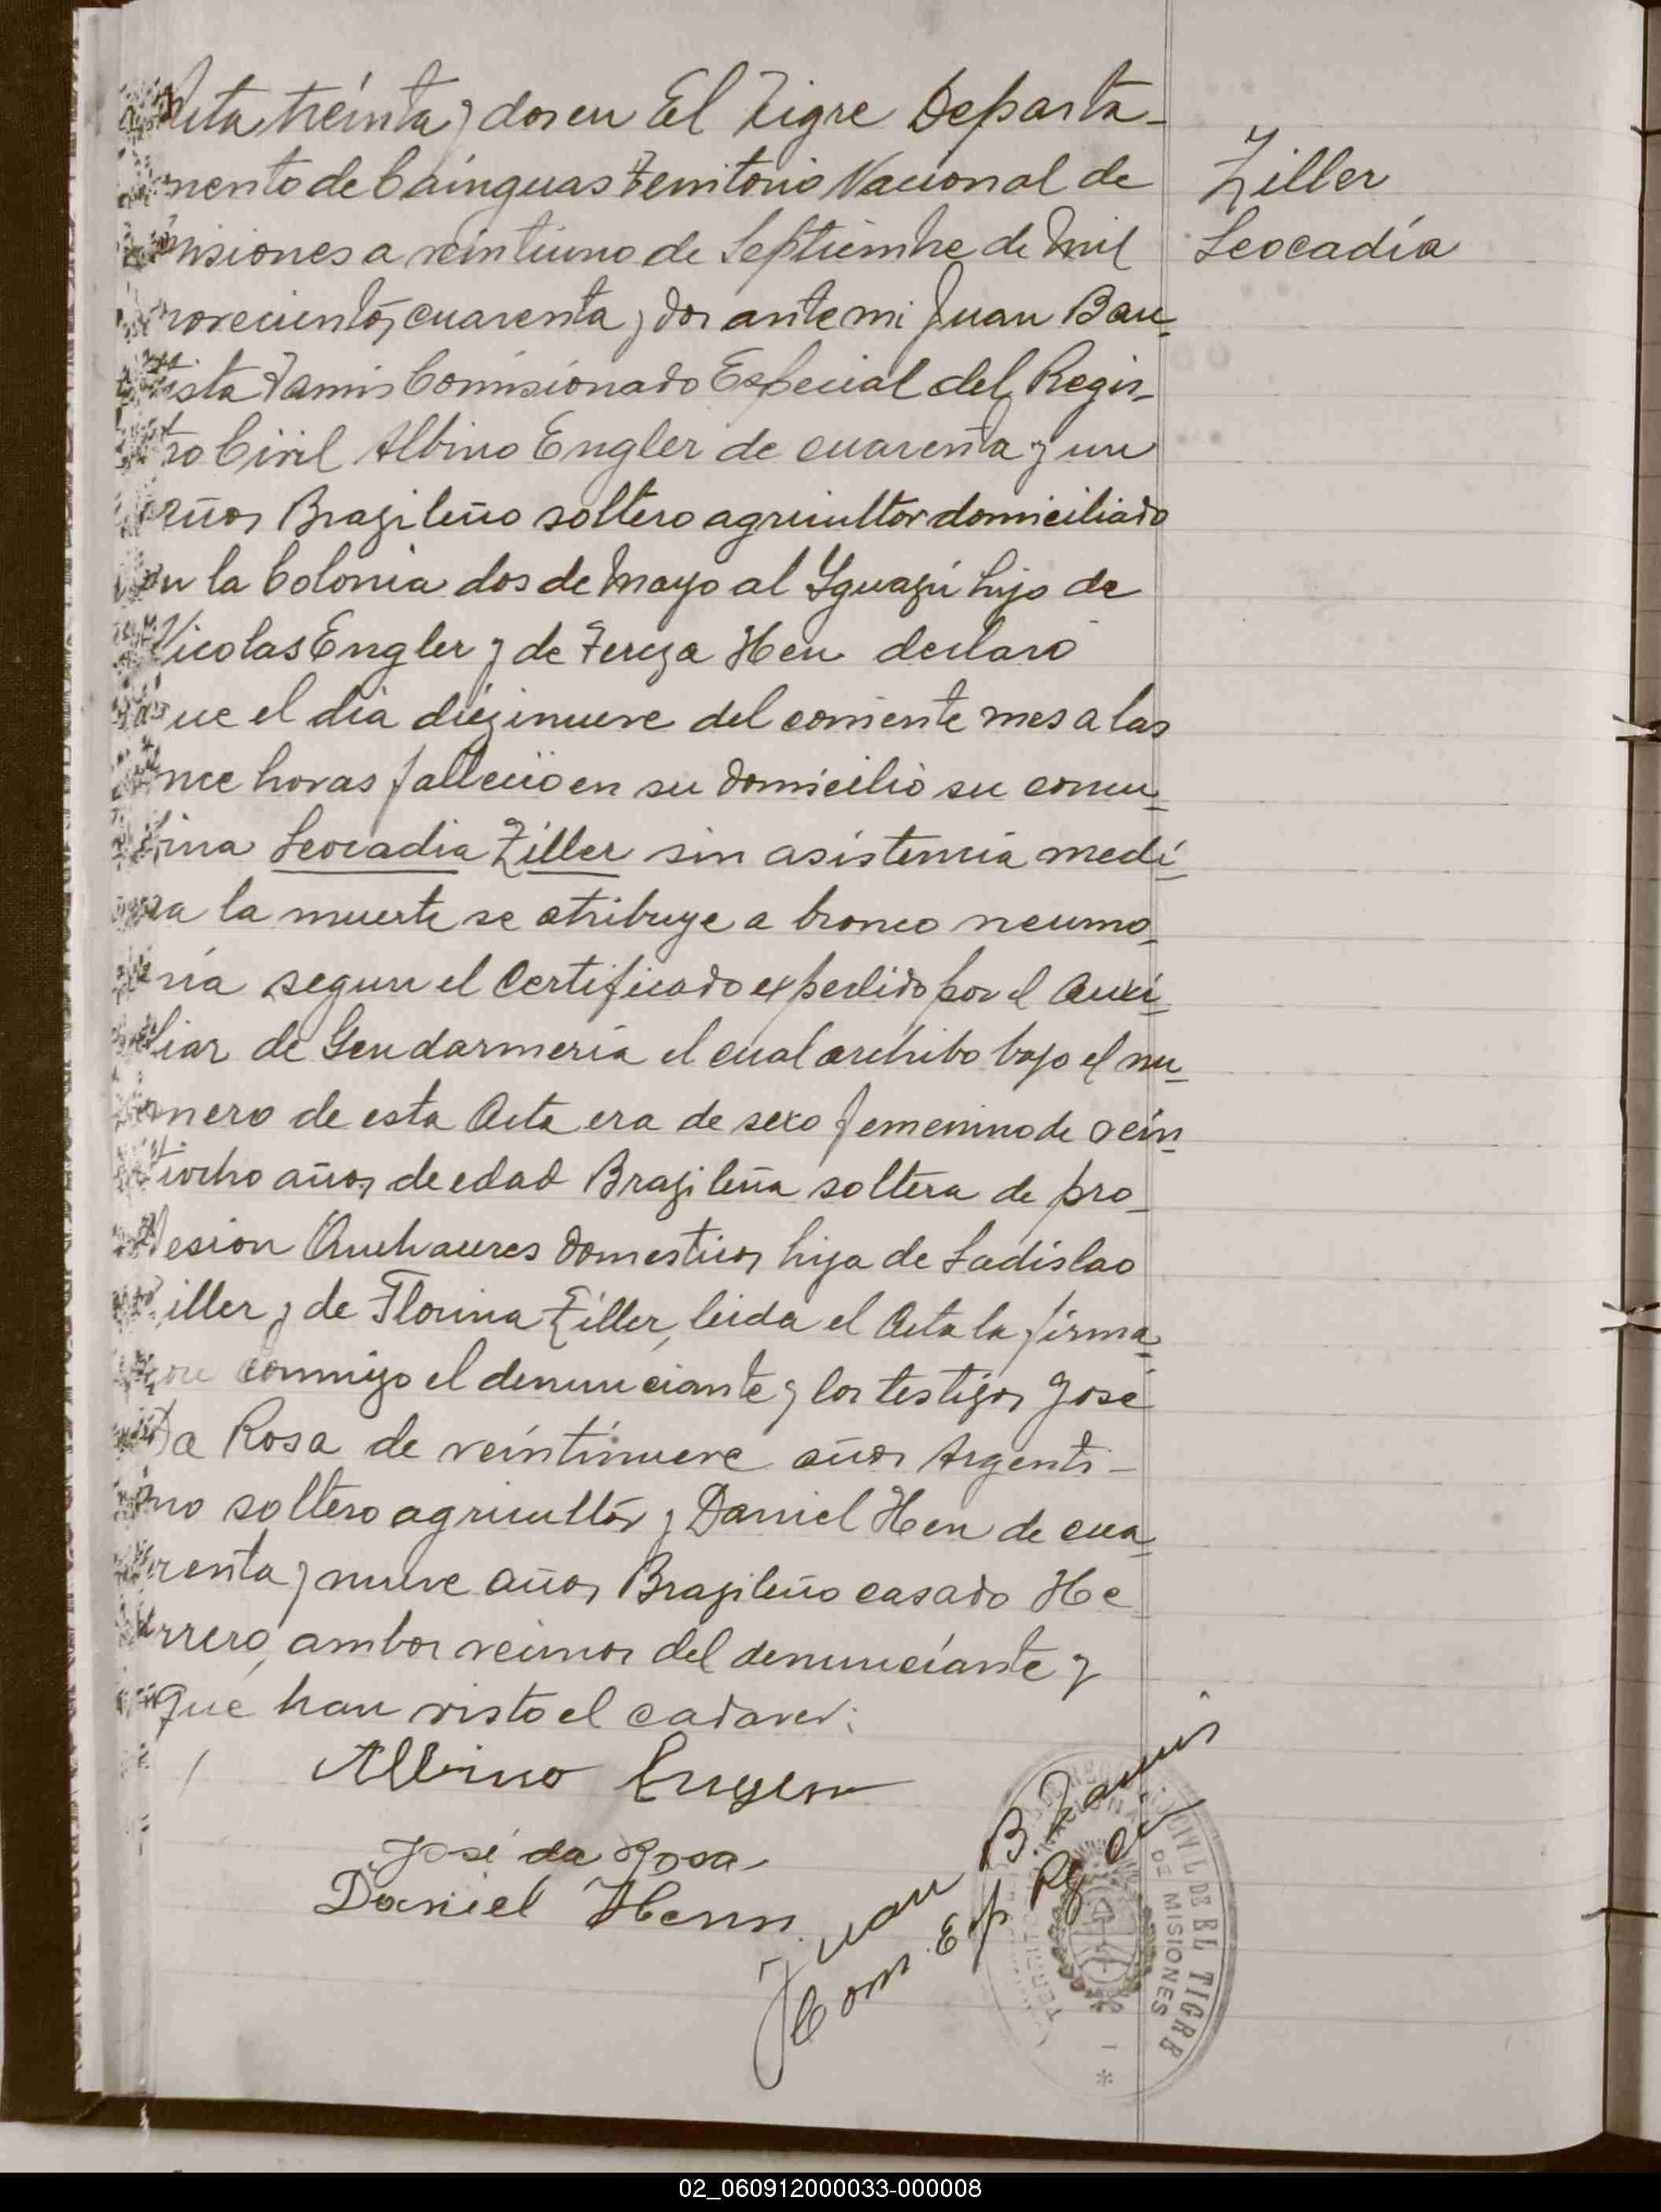 Acta treinta y dos en El Tigre Departa-
mento de Cainguas Territorio Nacional de
Misiones a veintiuno de Septiembre de Mil
novecientos cuarenta y dos ante mi Juan Bau-
tista Tamis Comisionado Especial del Regis-
tro Civil Albino Engler de cuarenta y un
años Brazileño soltero agricultor domiciliado
en la Colonia dos de Mayo al Yguazú hijo de
Nicolas Engler y de Tereza Hen declaró
que el dia diezinueve del corriente mes a las
once horas fallecio en su domicilio su concu-
bina Leocadia Ziller sin asistencia medi-
ca la muerte se atribuye a bronco neumo-
nia segun el Certificado expedido por el Auxi-
liar de Gendarmeria el cual archibo bajo el nu-
mero de esta Acta era de sexo femenino de vein-
tiocho años de edad Brazileña soltera de pro-
fesion Quehaceres domesticos hija de Ladislao
Ziller y de Florina Ziller, leida el Acta la firma-
ron conmigo el denunciante y los testigos José
Da Rosa de veintinueve años Argenti-
no soltero agricultor y Daniel Hen de cua-
renta y nueve años Brazileño casado He-
rrero, ambos vecinos del denunciante y
que han visto el cadaver:
Ziller
Leocadía
Albino Engler
José da Rosa
Daniel Henn
Juan B. Tamis
Com Esp Rg Civil
CIVIL DE EL TIGRE
DE MISIONES
02_060912000033-000008